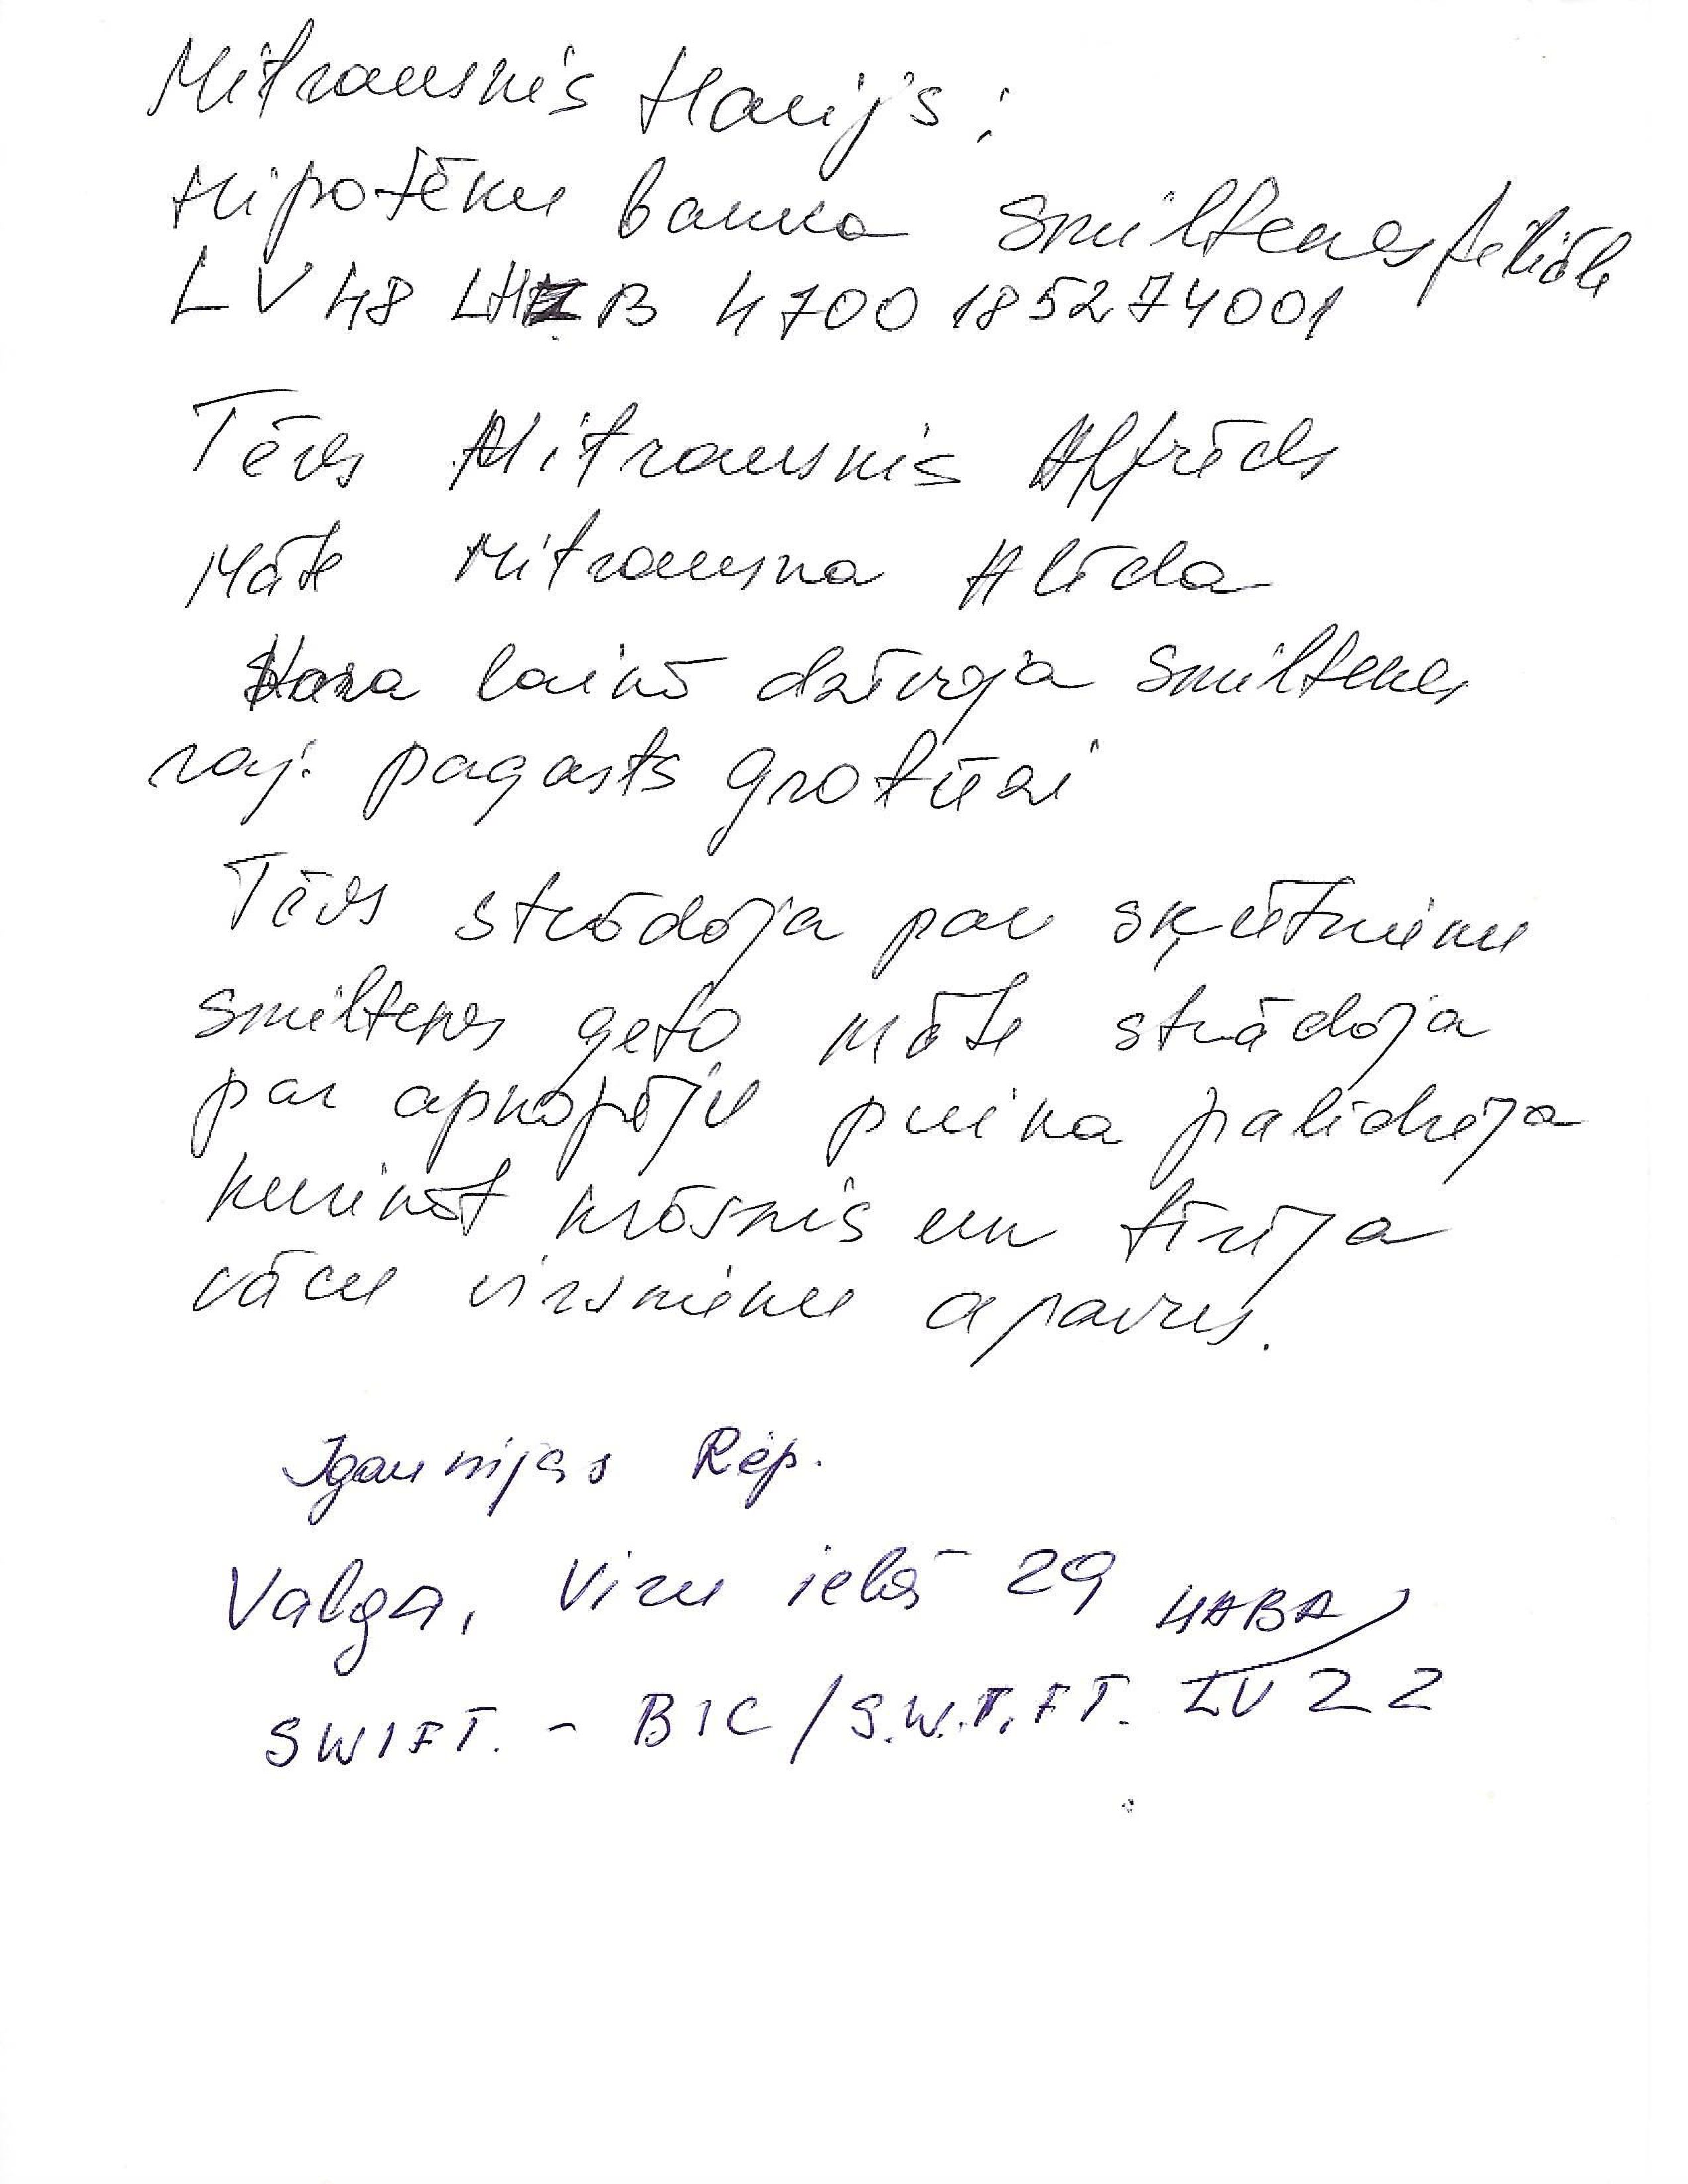 Mitrauskis Harijs:
Hipotēku banka Smiltenes filiāle
LV 48 LHZB 4700 185274001
Tēvs Mitrauskis Alfrēds
Māte Mitrauska Alīda
Kara laikā dzīvoja Smiltenes
raj. pagasts
Tēvs strādāja par sķūtnieku
Smiltenes geto māte strādāja
par apkopēju puika palīdzēja
kurināt krāsnis un tīrīja
vācu virsnieku apavus.
Igaunijas Rep.
Valga, Viru ielā 29 HABA
SWIFT. - BIC / S.W.I.F.T. LV22